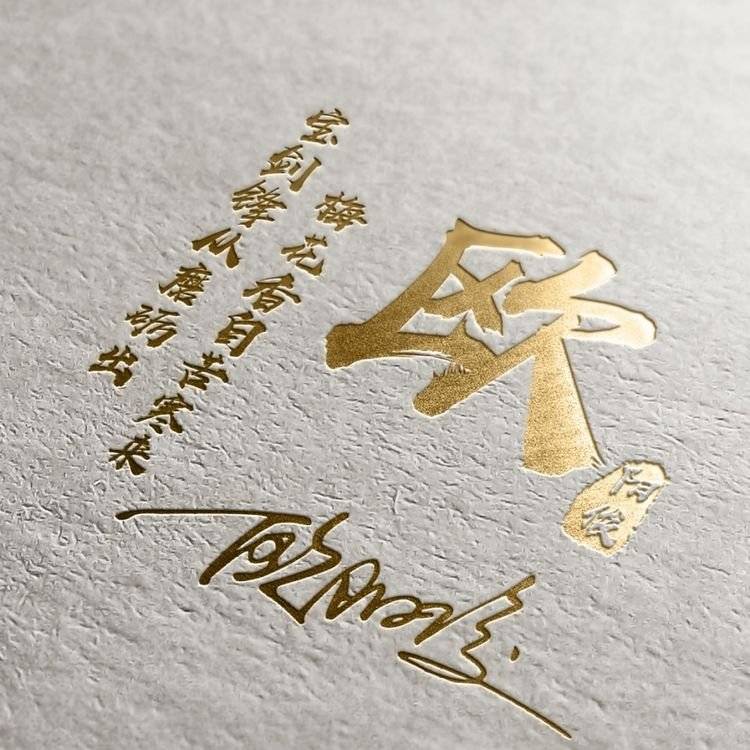 宝剑锋从磨砺出
梅花香自苦寒来
欧